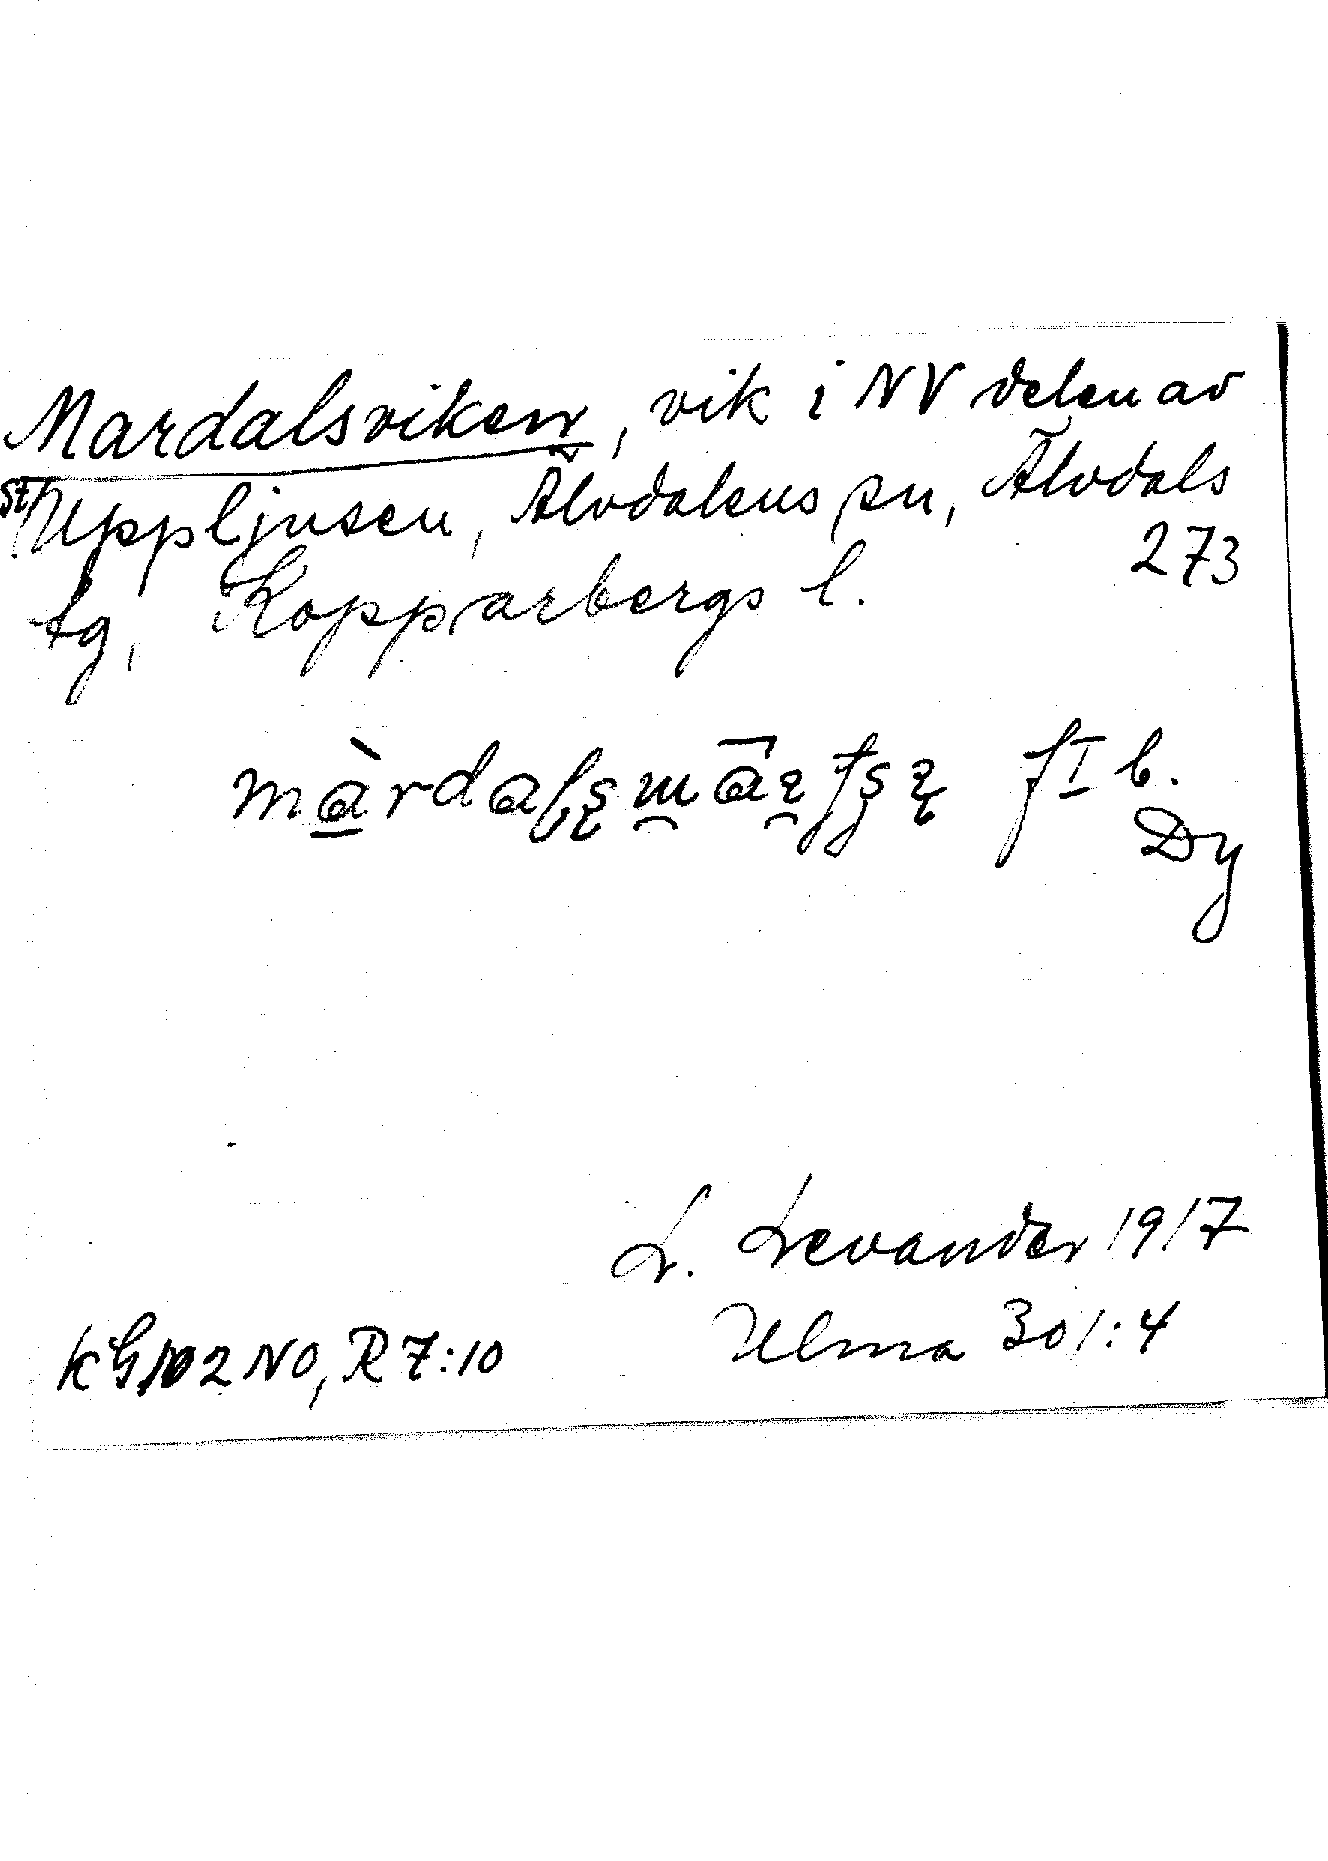 Mardalsviken, vik i NV delen av
St Uppljusen, Älvdalens sn, Älvdals
tg, Kopparbergs l. 273
f I b.
Dy
L. Levander 1917
Ulma 301:4
KG 102 NO, R 7:10